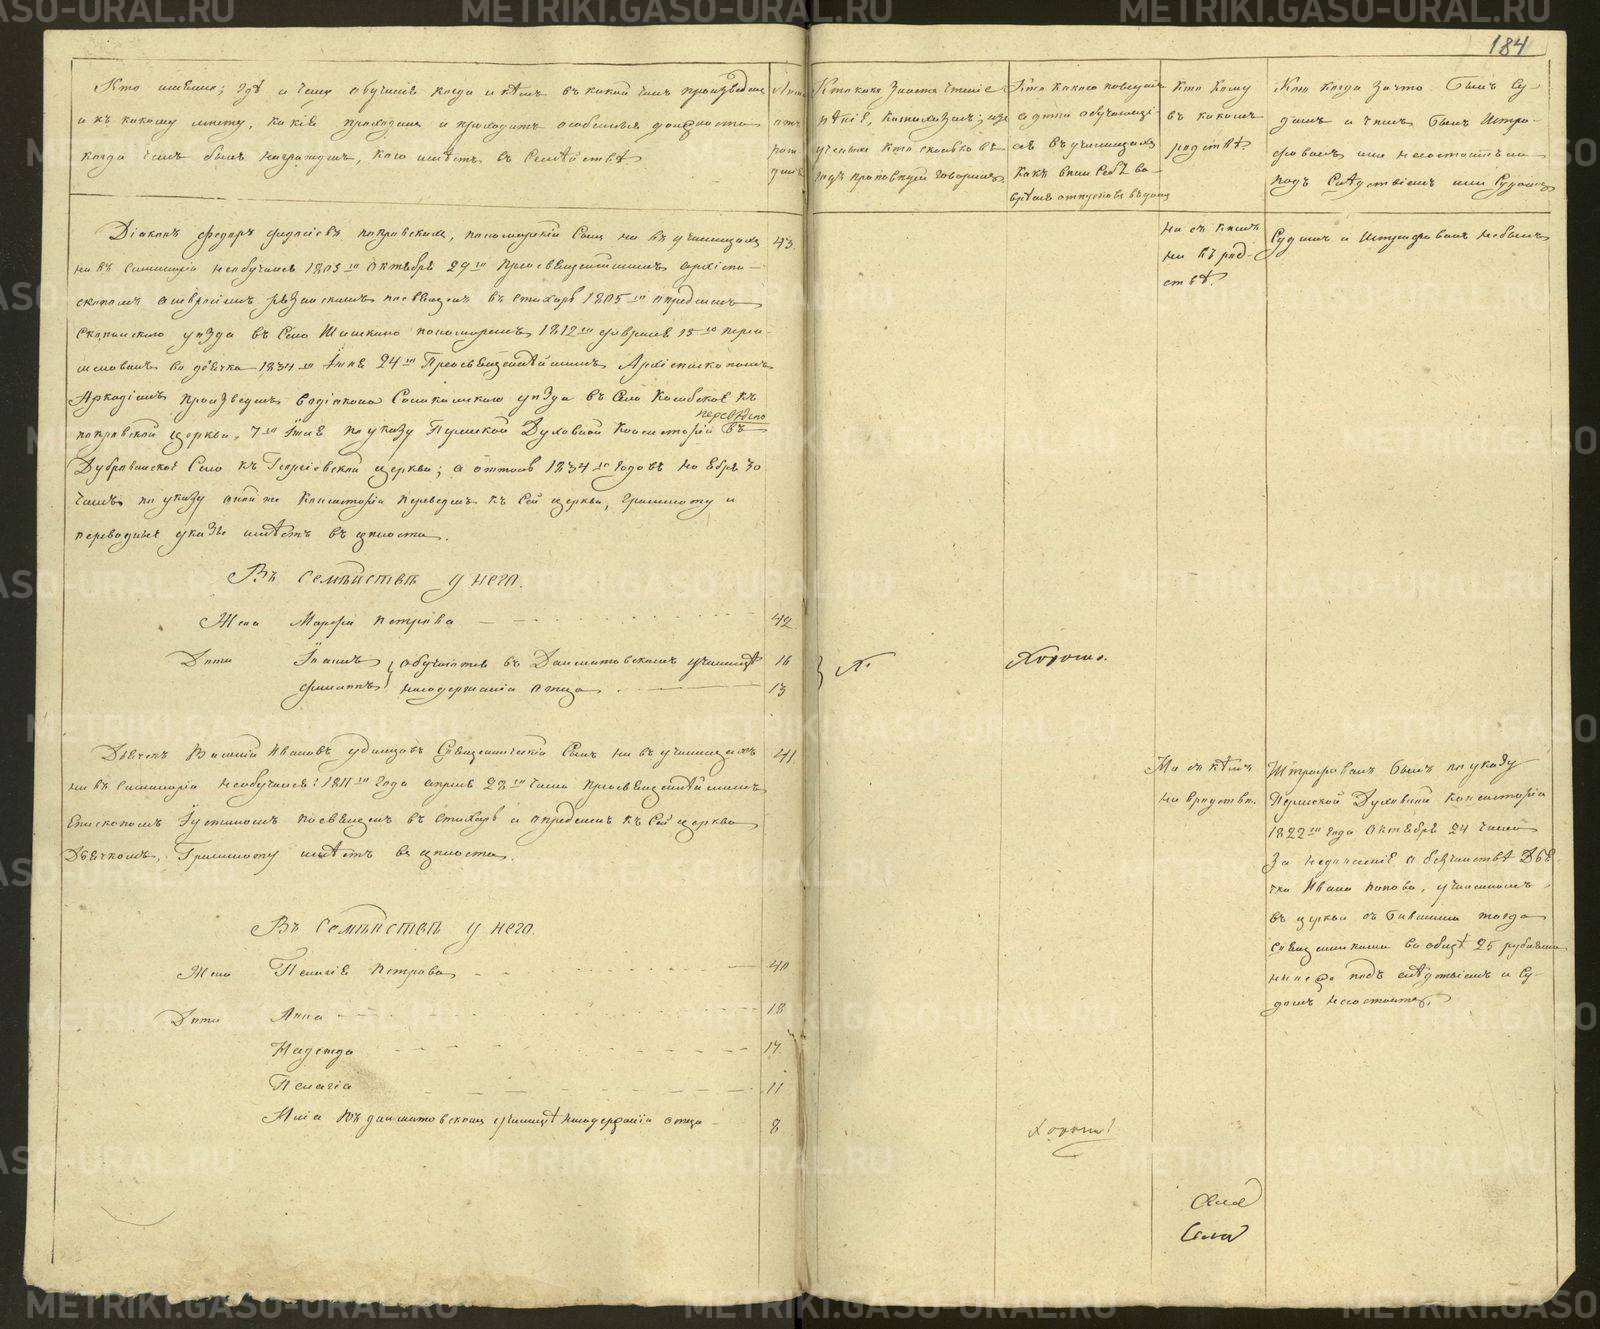 184
Кто именно; гдѣ и чему обучался когда и кѣмъ въ какой чинъ произведенъ
и къ какому мѣсту, какія проходилъ и проходитъ особенныя должности
когда чѣмъ былъ награжденъ, кого имѣетъ въ Семѣйствѣ
Кто какъ знаетъ чтеніе
пѣніе, катихизисъ; изъ
ученыхъ кто сколько въ
годъ проповѣдей говорилъ
Кто какого поведенія
а дѣти обучающі
еся въ училищахъ
какъ вели себѣ во
врѣмя отпусковъ въ домъ
Кто кому
въ какомъ
родствѣ.
Кто когда за что былъ Су-
димъ и чѣмъ былъ Штра-
фованъ или не состоитъ ли
подъ Слѣдствіемъ или Судомъ
Діаконъ Федоръ покровскій, пономарскій Сынъ ни въ училищахъ
ни въ Семинаріи необучался 1805 го Октября 29 го Преосвященнѣйшимъ Архіепи-
скопомъ рязанскимъ посвященъ въ Стихарь 1805 го опредѣленъ
Скопинскаго уѣзда въ Село пономаремъ 1812 го февраля 15 го переи-
менованъ во дьячка 1834 го Іюня 24 го Преосвященнѣйшимъ Архіепископомъ
Аркадіемъ произведенъ въ діакона Соликамскаго уѣзда въ Село къ
покровской церкви, 7 го Іюля по указу Пермской Духовной Консисторіи въ
Село къ Георгіевской церкви; а оттоль 1834 го года въ ноября 30
числѣ по указу оной же Консисторіи переведенъ къ Сей церкви, Граммоту и
переводные указы имѣетъ въ цѣлости.
43.
Ни съ кѣмъ
ни въ род-
ствѣ.
Судимъ и Штрафованъ небылъ
Въ Семѣйствѣ у него.
Жена Марфа Петрова 42
Дѣти Іоаннъ обучаются въ Далматовскомъ училищѣ 16
Филиппъ на содержаніи отца 13
Хорошо.
Дьячекъ Василій Ивановъ Удинцовъ Священническій Сынъ ни въ училищахъ
ни въ Семинаріи необучался: 1811 го года апрѣля 28 го числа Преосвященнѣйшимъ
Епископомъ Іустиномъ посвященъ въ Стихарь и опредѣленъ къ Сей церкви
Дьячкомъ. Граммоту имѣетъ въ цѣлости.
41.
Ни съ кѣмъ
ни въ родствѣ.
Штрафованъ былъ по указу
Пермской Духовной Консисторіи
1822 го года Октября 24 числа
за безчинствѣ Дья-
чка Ивана Попова, учиненномъ
въ церкви съ бывшими тогда
священниками 25 рублями
нынѣ же подъ слѣдствіемъ и Су-
домъ несостоитъ.
Въ Семѣйствѣ у него.
Жена Пелагія Петрова 40
Дѣти Анна 18
Надежда 14
Пелагія 11
Илія въ далматовскомъ училищѣ на содержаніи отца 8
Хорошо